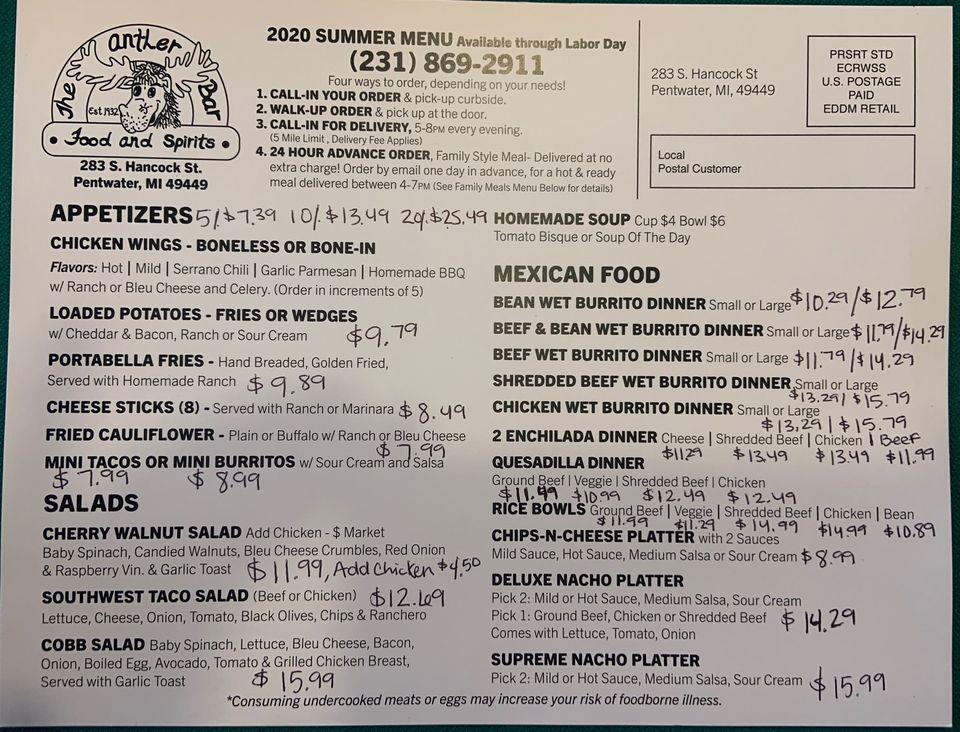 The Antler Bar
Est. 1932
• Food and Spirits •
283 S. Hancock St.
Pentwater, MI 49449
2020 SUMMER MENU Available through Labor Day
(231) 869-2911
Four ways to order, depending on your needs!
1. CALL-IN YOUR ORDER & pick-up curbside.
2. WALK-UP ORDER & pick up at the door.
3. CALL-IN FOR DELIVERY, 5-8PM every evening.
(5 Mile Limit, Delivery Fee Applies)
4. 24 HOUR ADVANCE ORDER, Family Style Meal- Delivered at no
extra charge! Order by email one day in advance, for a hot & ready
meal delivered between 4-7PM (See Family Meals Menu Below for details)
283 S. Hancock St
Pentwater, MI, 49449
PRSRT STD
ECRWSS
U.S. POSTAGE
PAID
EDDM RETAIL
Local
Postal Customer
APPETIZERS 5/$7.39 10/$13.49 20/$25.49
CHICKEN WINGS - BONELESS OR BONE-IN
Flavors: Hot | Mild | Serrano Chili | Garlic Parmesan | Homemade BBQ
w/ Ranch or Bleu Cheese and Celery. (Order in increments of 5)
LOADED POTATOES - FRIES OR WEDGES
w/ Cheddar & Bacon, Ranch or Sour Cream $9.79
PORTABELLA FRIES - Hand Breaded, Golden Fried,
Served with Homemade Ranch $9.89
CHEESE STICKS (8) - Served with Ranch or Marinara $8.49
FRIED CAULIFLOWER - Plain or Buffalo w/ Ranch or Bleu Cheese
$7.99
MINI TACOS OR MINI BURRITOS w/ Sour Cream and Salsa
$7.99 $8.99
SALADS
CHERRY WALNUT SALAD Add Chicken - $ Market
Baby Spinach, Candied Walnuts, Bleu Cheese Crumbles, Red Onion
& Raspberry Vin. & Garlic Toast $11.99, Add Chicken $4.50
SOUTHWEST TACO SALAD (Beef or Chicken) $12.69
Lettuce, Cheese, Onion, Tomato, Black Olives, Chips & Ranchero
COBB SALAD Baby Spinach, Lettuce, Bleu Cheese, Bacon,
Onion, Boiled Egg, Avocado, Tomato & Grilled Chicken Breast,
Served with Garlic Toast $15.99
HOMEMADE SOUP Cup $4 Bowl $6
Tomato Bisque or Soup Of The Day
MEXICAN FOOD
BEAN WET BURRITO DINNER Small or Large $10.29/$12.79
BEEF & BEAN WET BURRITO DINNER Small or Large $11.79/$14.29
BEEF WET BURRITO DINNER Small or Large $11.79/$14.29
SHREDDED BEEF WET BURRITO DINNER Small or Large
$13.29/$15.79
CHICKEN WET BURRITO DINNER Small or Large
$13.29/$15.79
2 ENCHILADA DINNER Cheese | Shredded Beef | Chicken | Beef
$11.29 $13.49 $13.49 $11.99
QUESADILLA DINNER
Ground Beef | Veggie | Shredded Beef | Chicken
$11.99 $10.99 $12.49 $12.49
RICE BOWLS Ground Beef | Veggie | Shredded Beef | Chicken | Bean
$11.99 $11.29 $14.99 $14.99 $10.89
CHIPS-N-CHEESE PLATTER with 2 Sauces
Mild Sauce, Hot Sauce, Medium Salsa or Sour Cream $8.99
DELUXE NACHO PLATTER
Pick 2: Mild or Hot Sauce, Medium Salsa, Sour Cream
Pick 1: Ground Beef, Chicken or Shredded Beef $14.29
Comes with Lettuce, Tomato, Onion
SUPREME NACHO PLATTER
Pick 2: Mild or Hot Sauce, Medium Salsa, Sour Cream $15.99
*Consuming undercooked meats or eggs may increase your risk of foodborne illness.